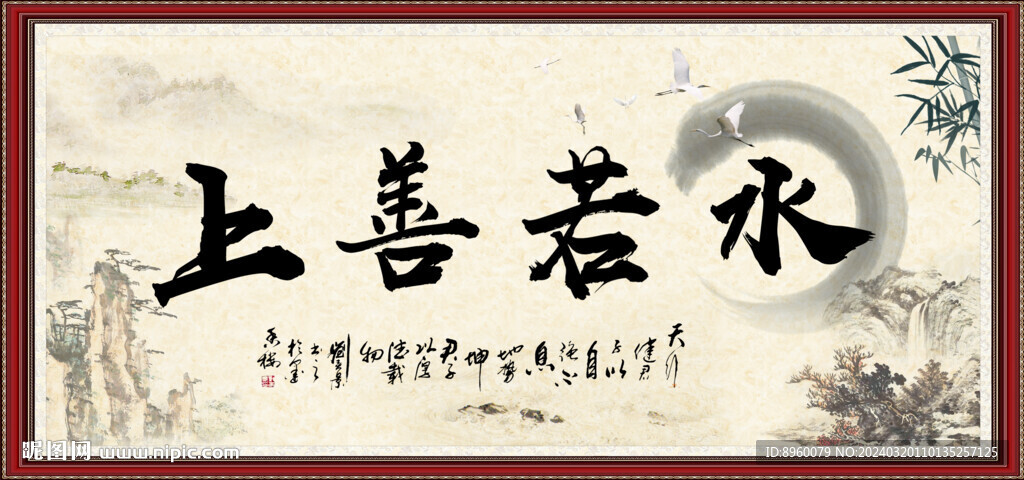 上善若水
天行
健君
子以
自
强不
息
地势
坤
君子
以厚
德载
物
劉
书之
於
昵图网 www.nipic.com
ID:8960079 NO:20240320110135257125